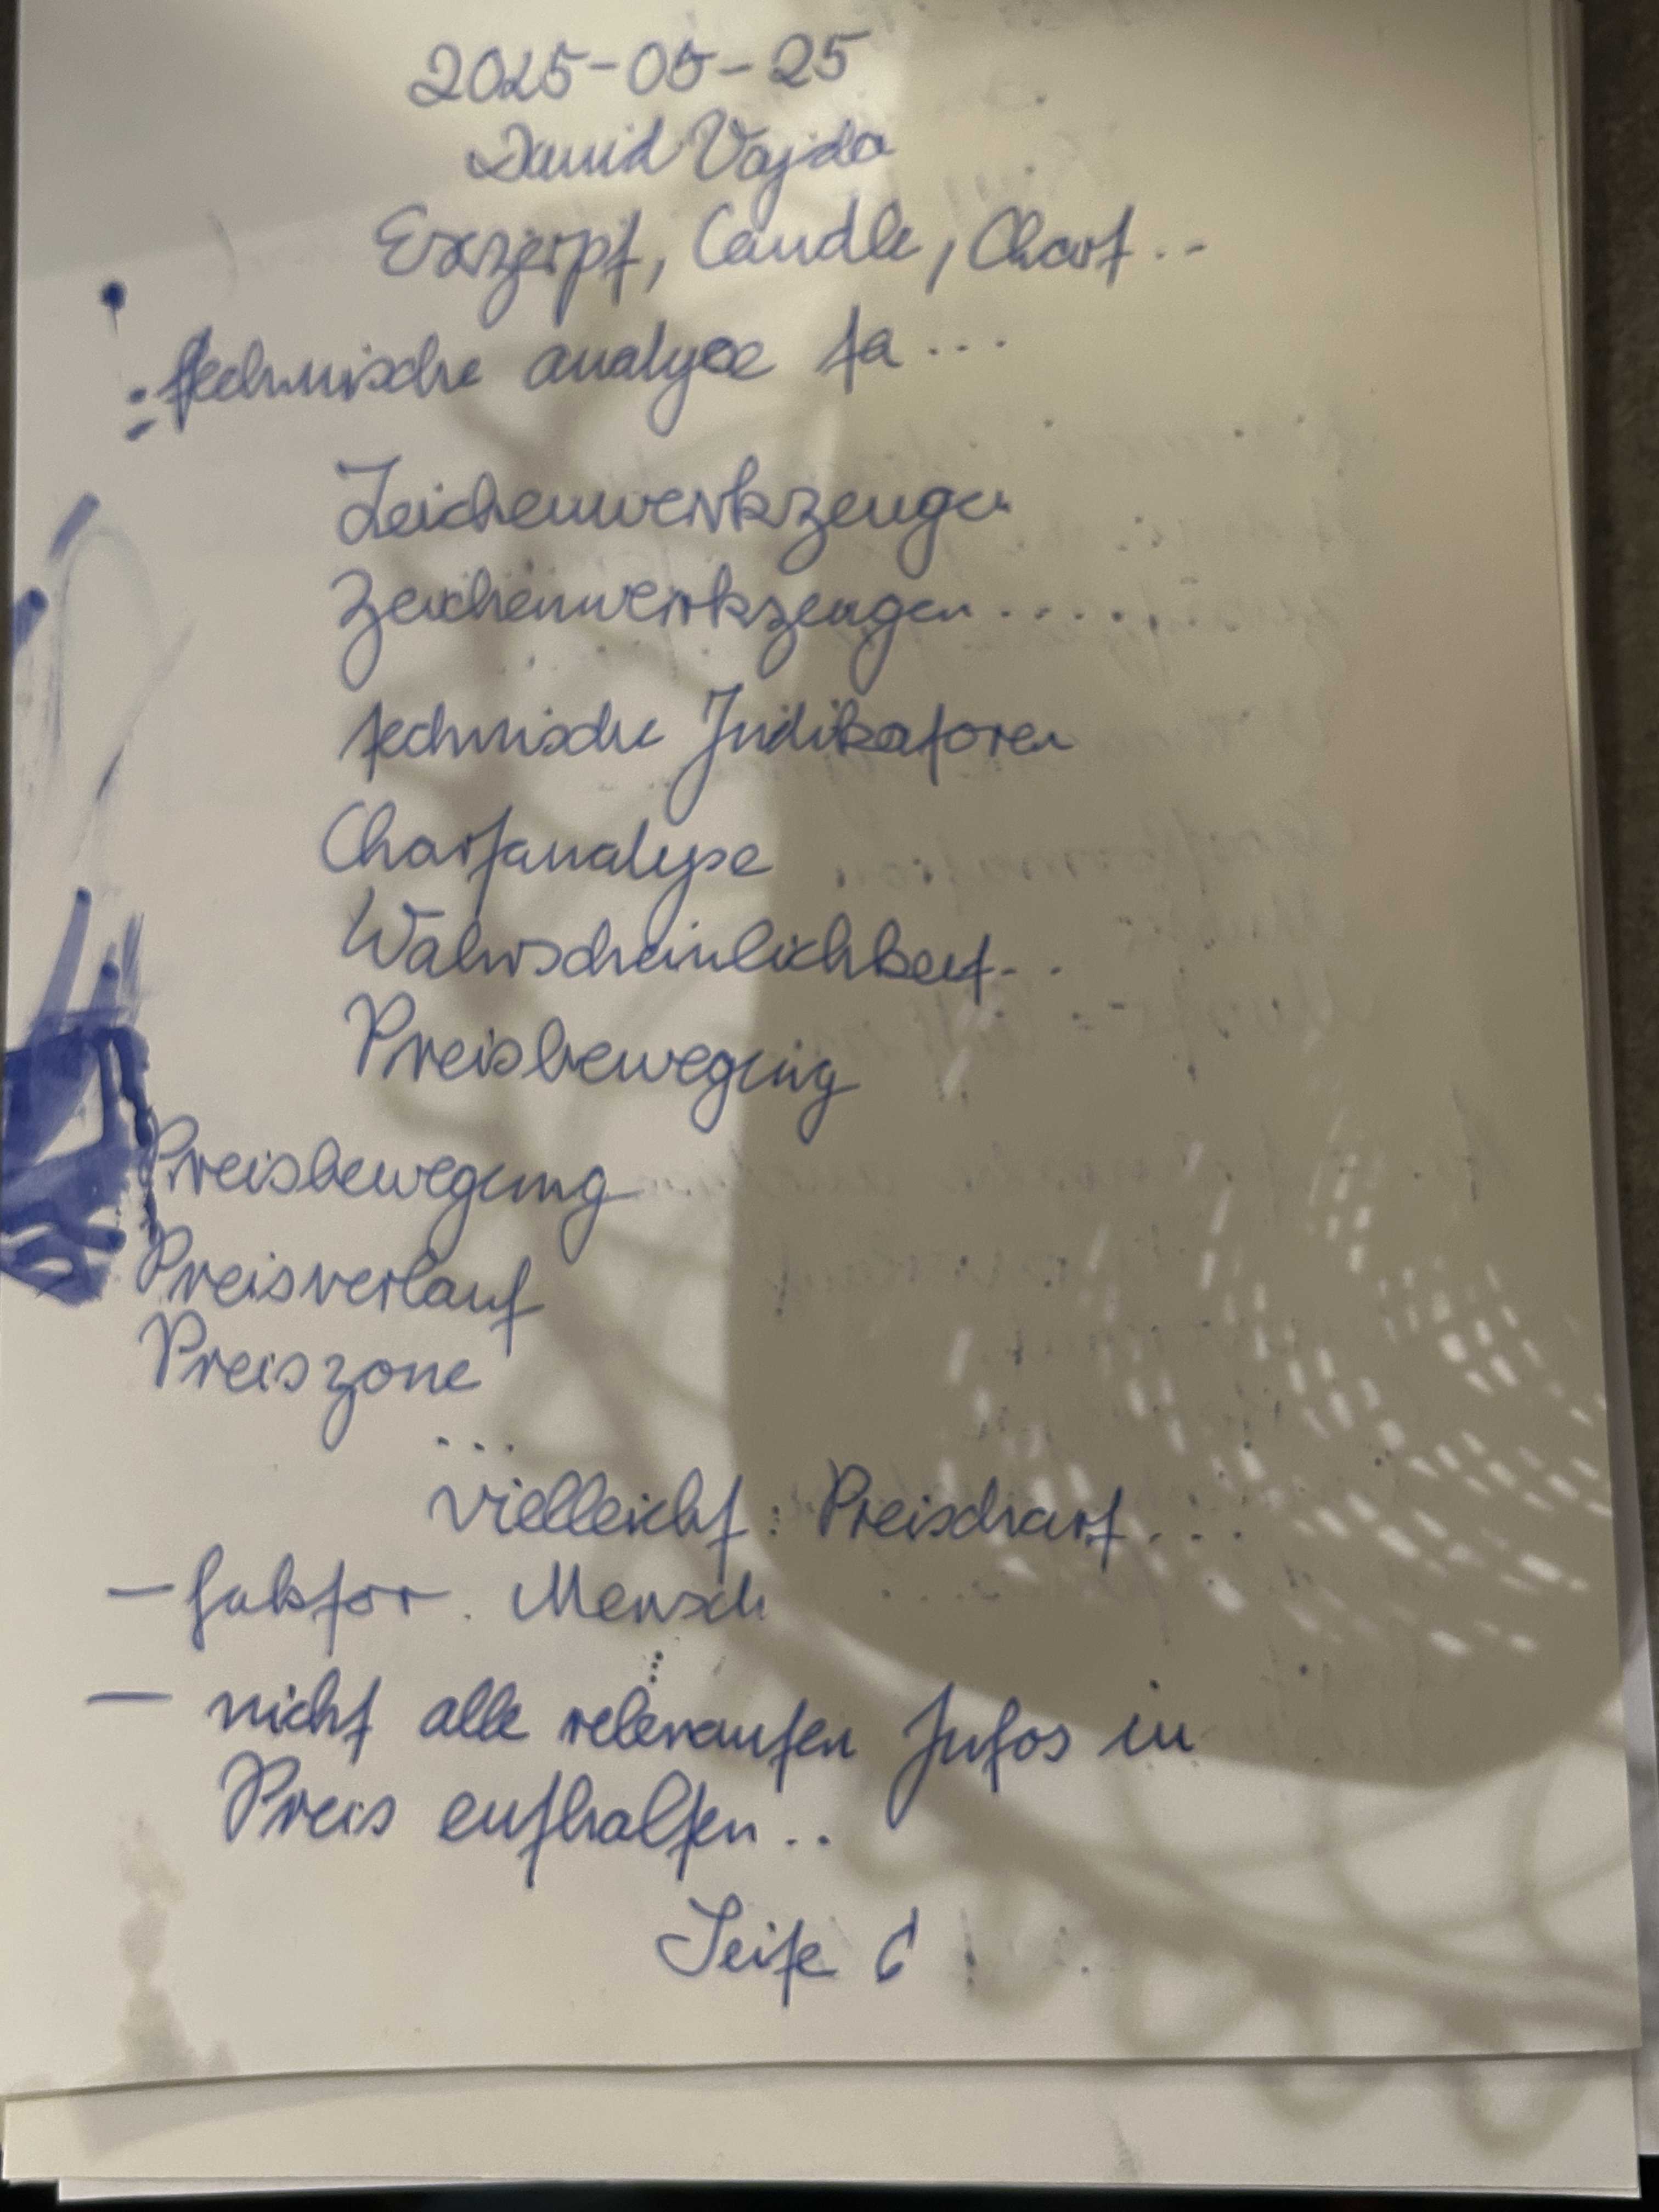 2025-05-25
David Vajda
Exzerpt, Candle, Chart..
: technische analyse ta...
Zeichenwerkzeugen
Zeichenwerkzeugen......
technische Indikatoren
Chartanalyse
Wahrscheinlichkeit..
Preisbewegung
Preisbewegung
Preisverlauf
Preiszone
...
vielleicht: Preischart...
- faktor. Mensch
....
- nicht alle relevanten Infos in
Preis enthalten..
Seite 6